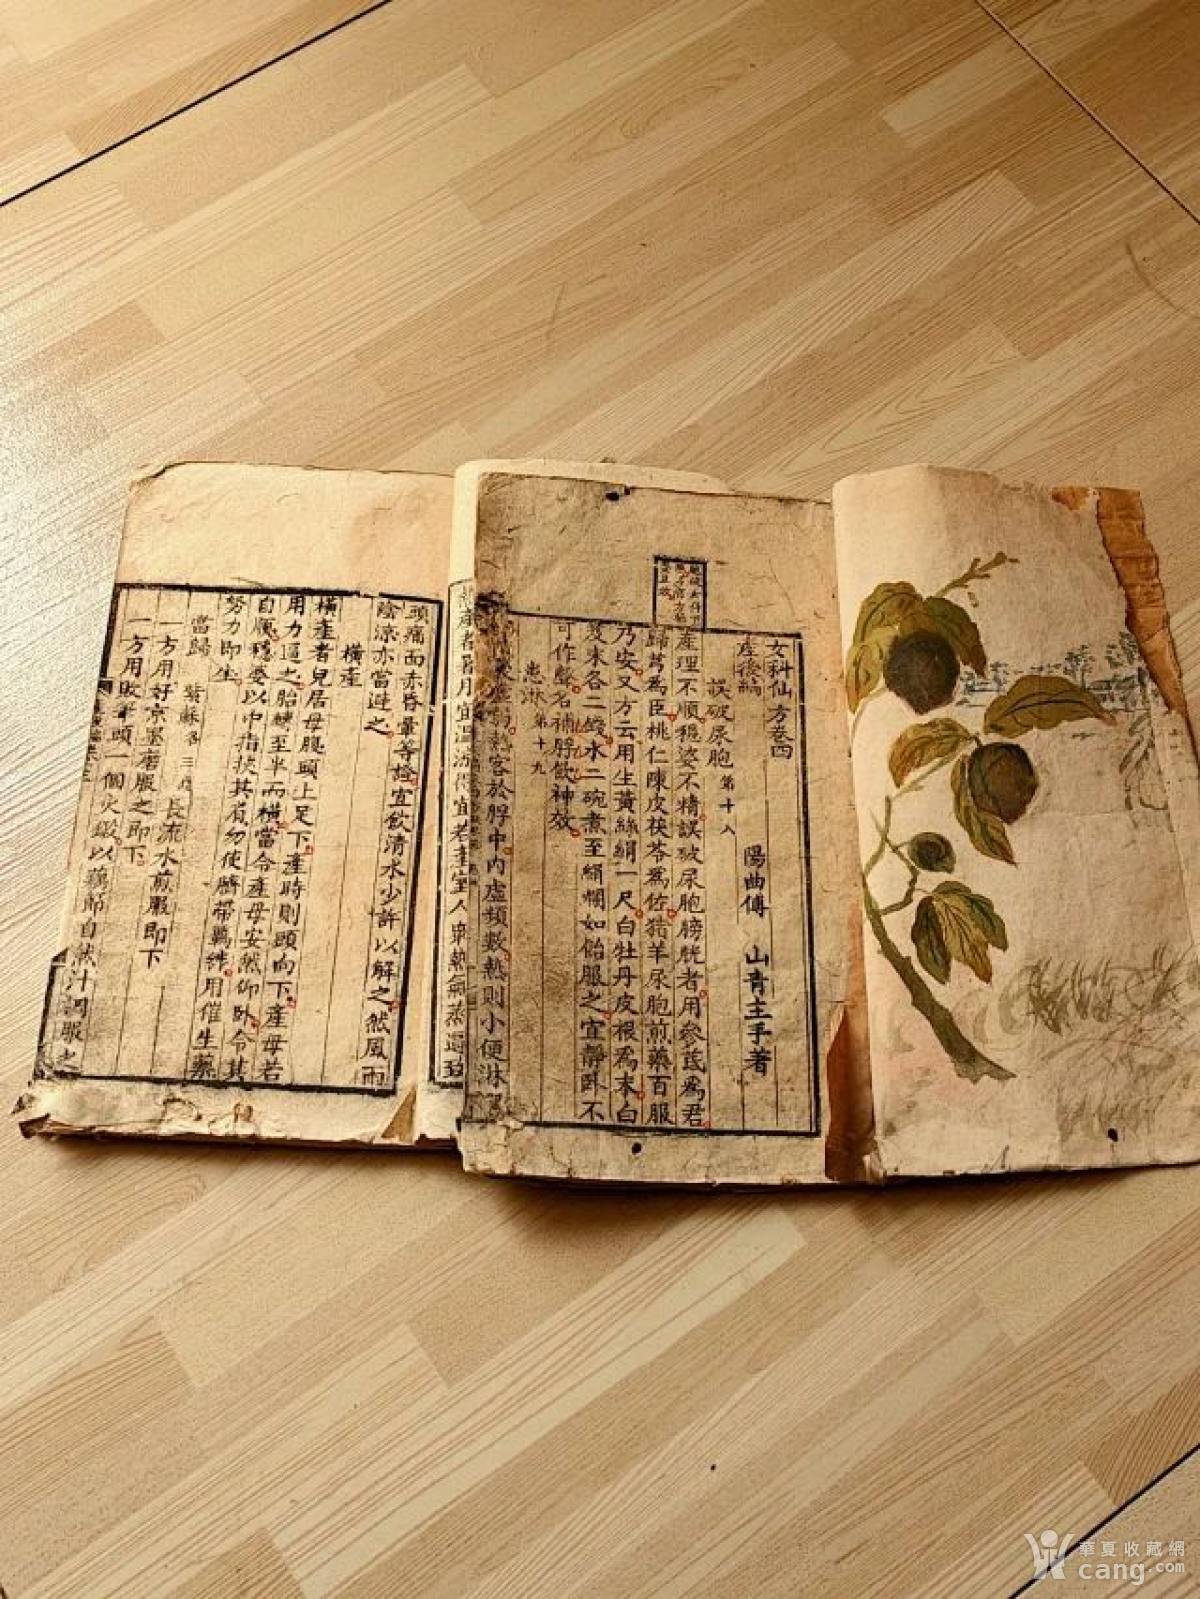 女科仙方卷四
陽曲傅 山青主手著
產後編
誤破尿胞 第十八
產理不順穩婆不精誤破尿胞膀胱者用參芪為君
歸芎為臣桃仁陳皮茯苓為佐猪羊尿胞煎藥百服
乃安又方云用生黃絲絹一尺白牡丹皮根為末白
芨末各二錢水二碗煮至絹爛如飴服之宜靜卧不
可作聲名補脬飲神效
患淋 第十九
熱客於脬中內虛頻數熱則小便淋
頭痛面赤昏暈等證宜飲清水少許以解之然風雨
陰涼亦當避之
橫產
橫產者兒居母腹頭上足下產時則頭向下產母若
用力逼之胎轉至半而橫當令產母安然仰卧令其
自順穩婆以中指挾其肩勿使臍帶羈絆用催生藥
努力即生
當歸 紫蘇各三 長流水煎服即下
一方用好京墨磨服之即下
一方用敗筆頭一個火鍛以藕節自然汁調服之
華夏收藏網
cang.com